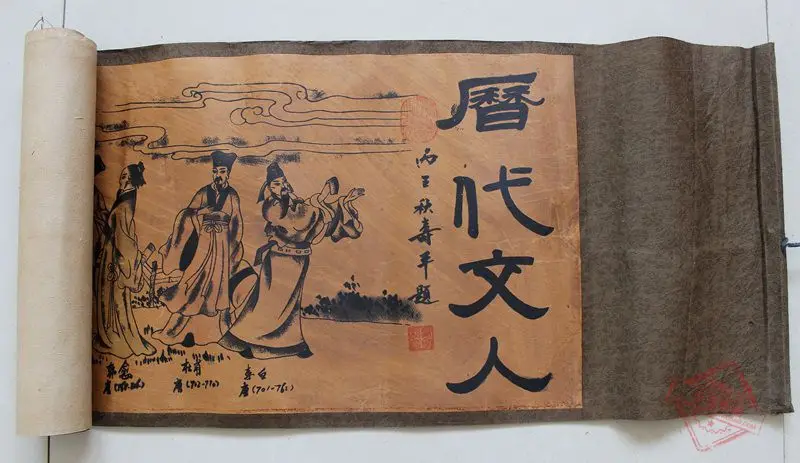 曆代文人
丙秋壽平題
李白
唐(701-762)
杜甫
唐(712-770)
韩愈
唐